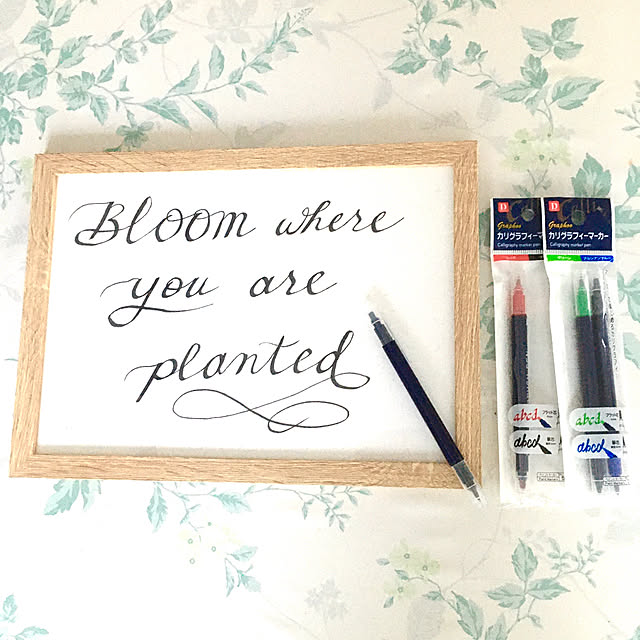 Bloom where
you are
planted
D
Graphos
カリグラフィーマーカー
Calligraphy marker pen
abcd
abcd
D
Graphos
カリグラフィーマーカー
Calligraphy marker pen
abcd
abcd